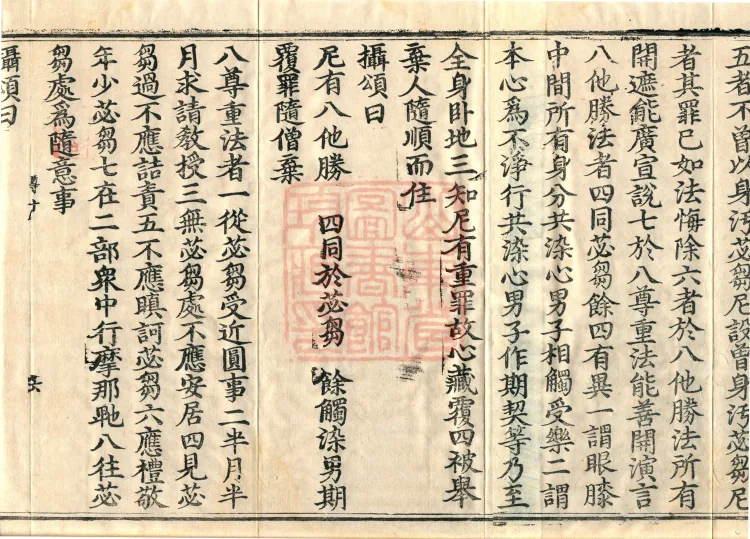 五者不曾以身污苾芻尼設曾身污苾芻尼
者其罪已如法悔除六者於八他勝法所有
開遮能廣宣說七於八尊重法能善開演言
八他勝法者四同苾芻餘四有異一謂眼膝
中間所有身分共染心男子相觸受樂二謂
本心為不淨行共染心男子作期契等乃至
全身卧地三知尼有重罪故心藏覆四被舉
棄人隨順而住
攝頌曰
尼有八他勝　四同於苾芻　餘觸染男期
覆罪隨僧棄
八尊重法者一從苾芻受近圓事二半月半
月求請教授三無苾芻處不應安居四見苾
芻過不應詰責五不應瞋訶苾芻六應禮敬
年少苾芻七在二部衆中行摩那𭴜八往苾
芻處為隨意事
攝頌曰